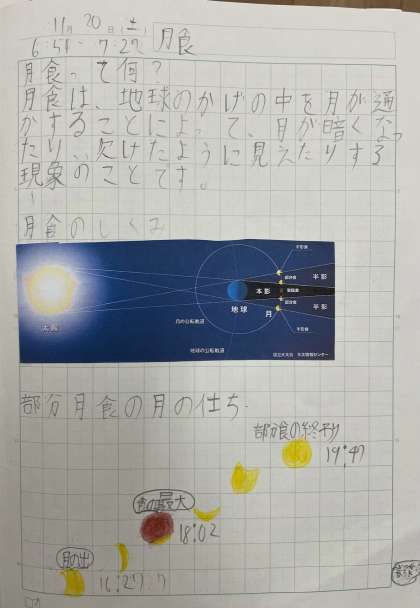 11月20日(土)
6:51-7:22 月食
月食って何?
月食は、地球のかげの中を月が通
かすることによって、月が暗くなっ
たり、欠けたように見えたりする
現象のことです。
月食のしくみ
太陽
月の公転軌道
地球の公転軌道
地球
本影
月
半影
半影
半影食
部分食
皆既食
部分食
半影食
国立天文台 天文情報センター
部分月食の月の仕ち
部分食の終わり
19:47
食の最大
18:02
月の出
16:27